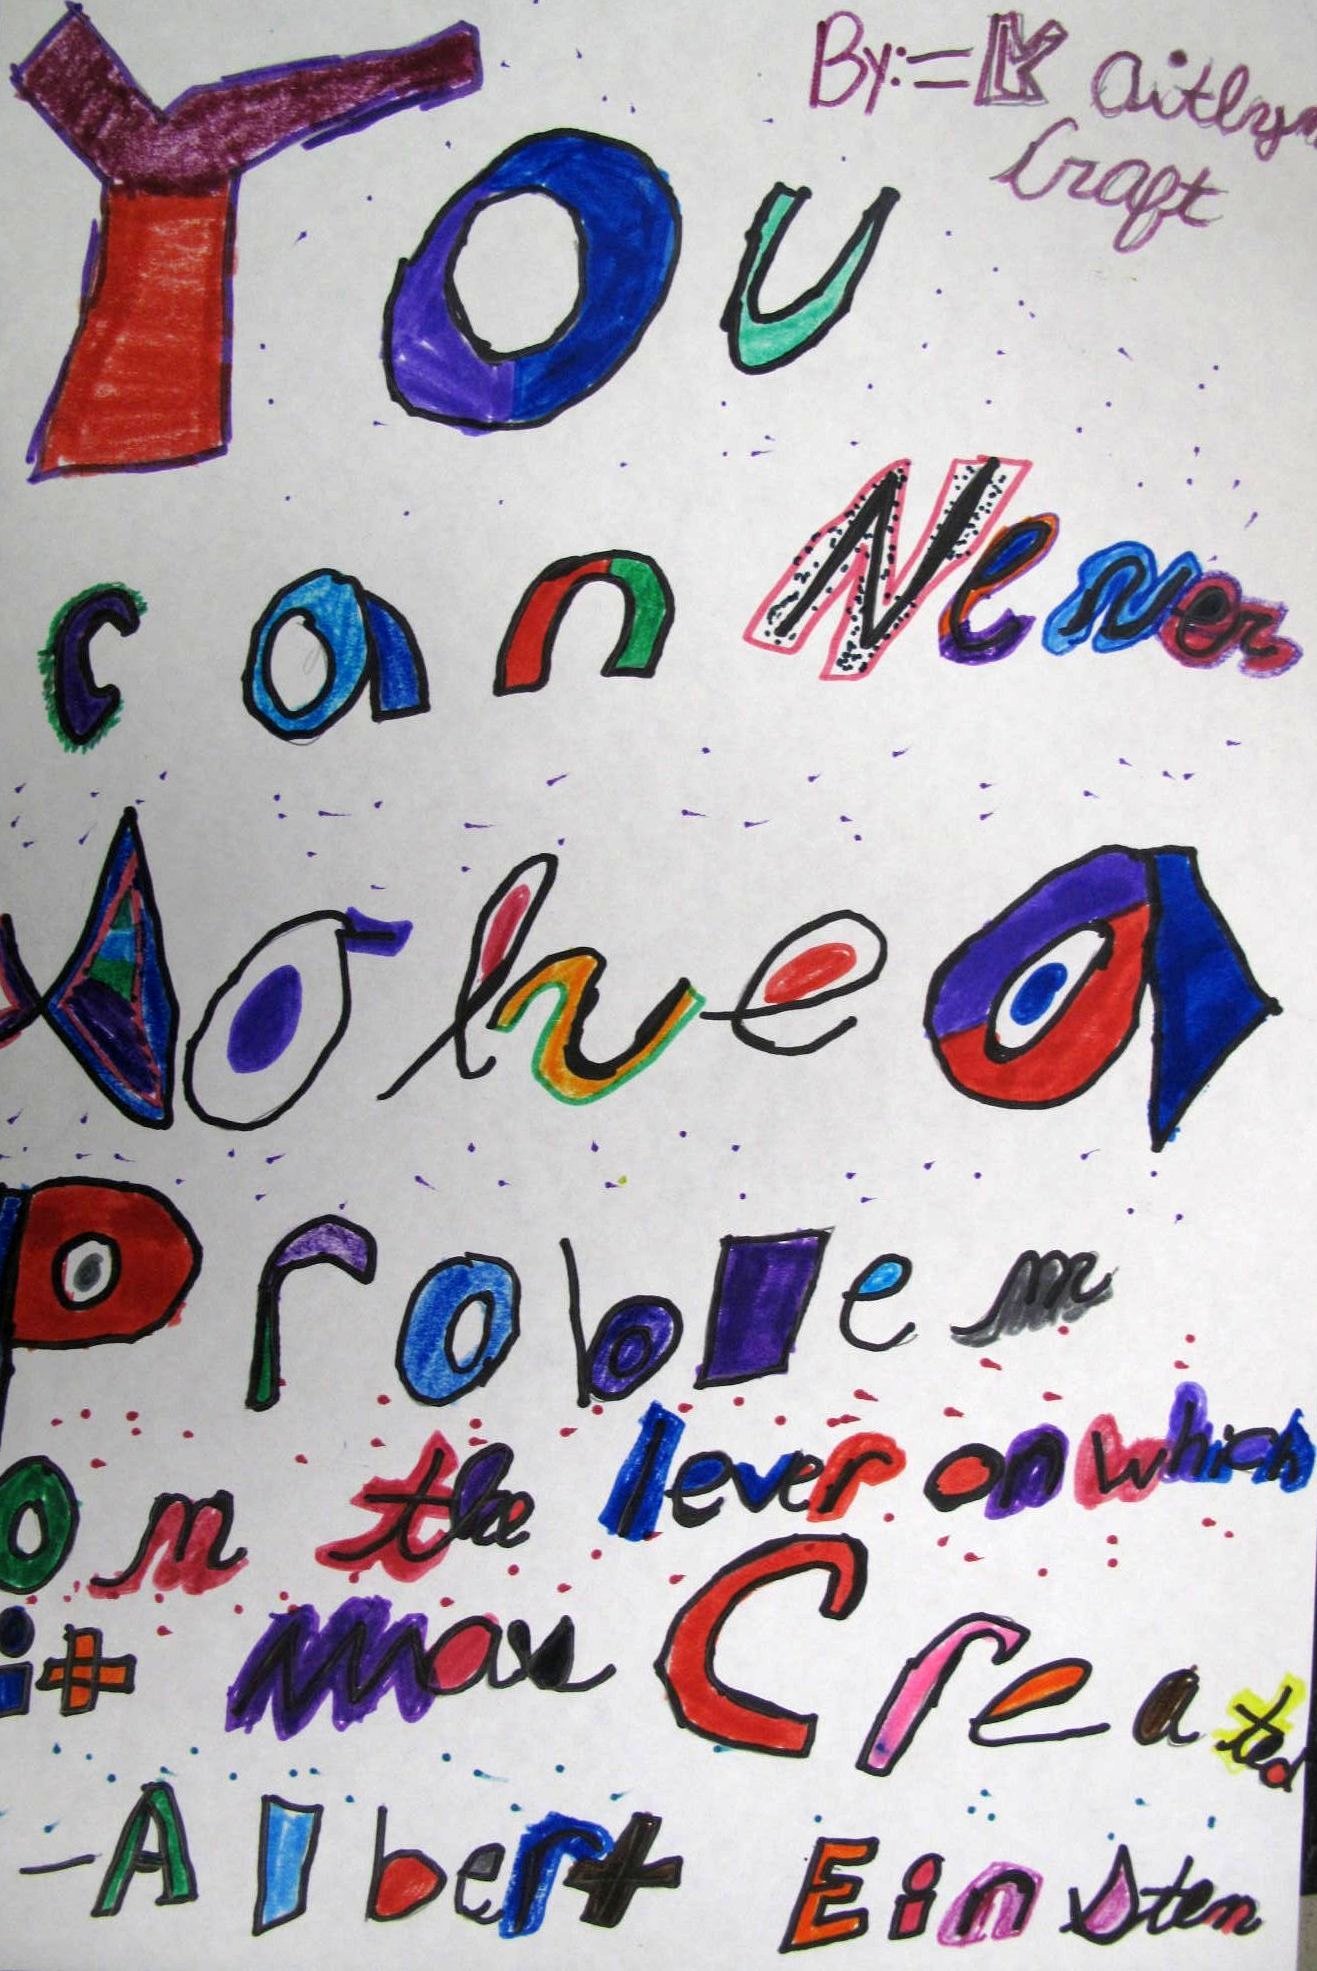 By:= Kaitlyn
Craft
You
can Never
Solve a
Problem
on the lever on which
it was Created
-Albert Einsten